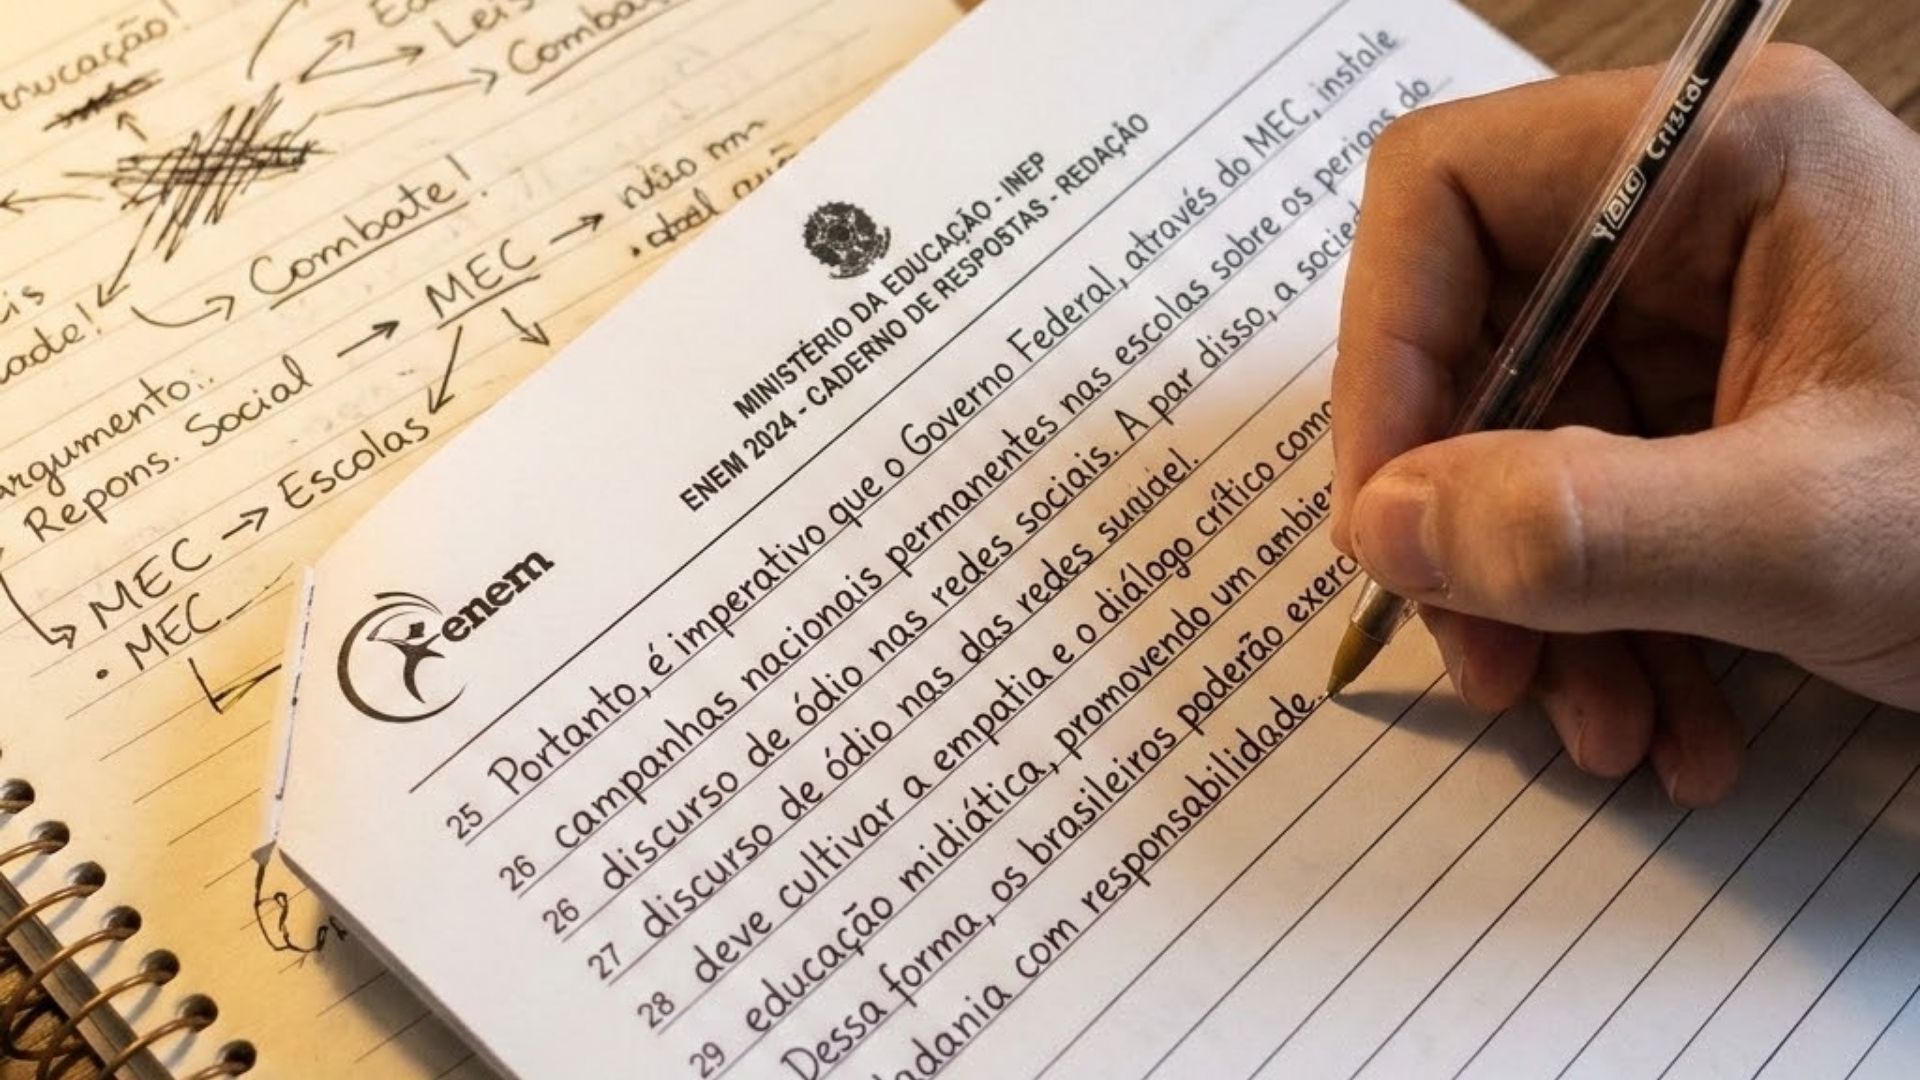 Leis
Combate
Combate!
MEC → não
Argumento:.
Repons. Social → MEC
MEC → Escolas
• MEC
MINISTÉRIO DA EDUCAÇÃO - INEP
ENEM 2024 - CADERNO DE RESPOSTAS - REDAÇÃO
enem
25 Portanto, é imperativo que o Governo Federal, através do MEC, instale
26 campanhas nacionais permanentes nas escolas sobre os perigos do
26 discurso de ódio nas redes sociais. A par disso, a socied
27 discurso de ódio nas das redes
28 deve cultivar a empatia e o diálogo crítico como
29 educação midiática, promovendo um ambien
Dessa forma, os brasileiros poderão exerc
adania com responsabilidade...
BIC Cristal